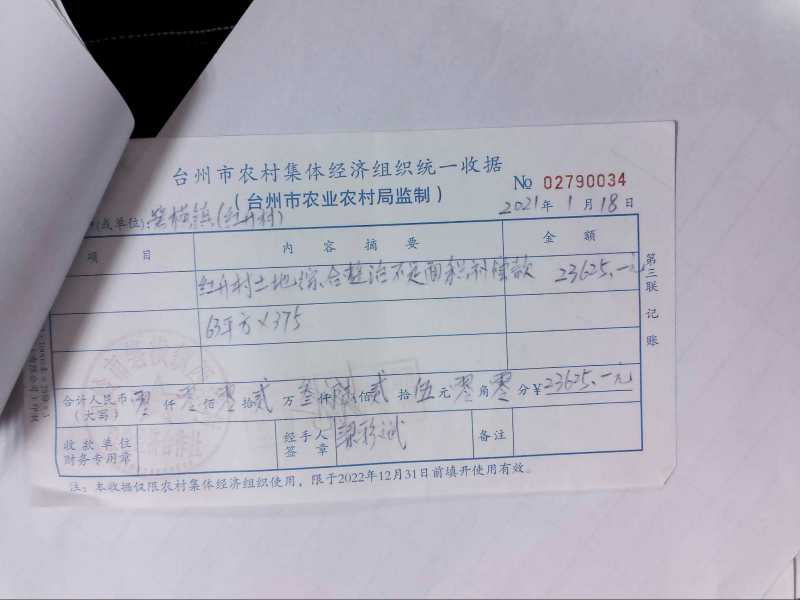 台州市农村集体经济组织统一收据
(台州市农业农村局监制)
No 02790034
2021年1月18日
(或单位):箬横镇(红升村)
项目 内容摘要 金额
红升村土地综合整治不足面积补偿款 23625.一元
63平方×375
第三联 记账
合计人民币(大写) 零仟零佰零拾贰万叁仟陆佰贰拾伍元零角零分¥23625.一元
收款单位财务专用章 经手人签章 备注
注:本收据仅限农村集体经济组织使用,限于2022年12月31日前填开使用有效。